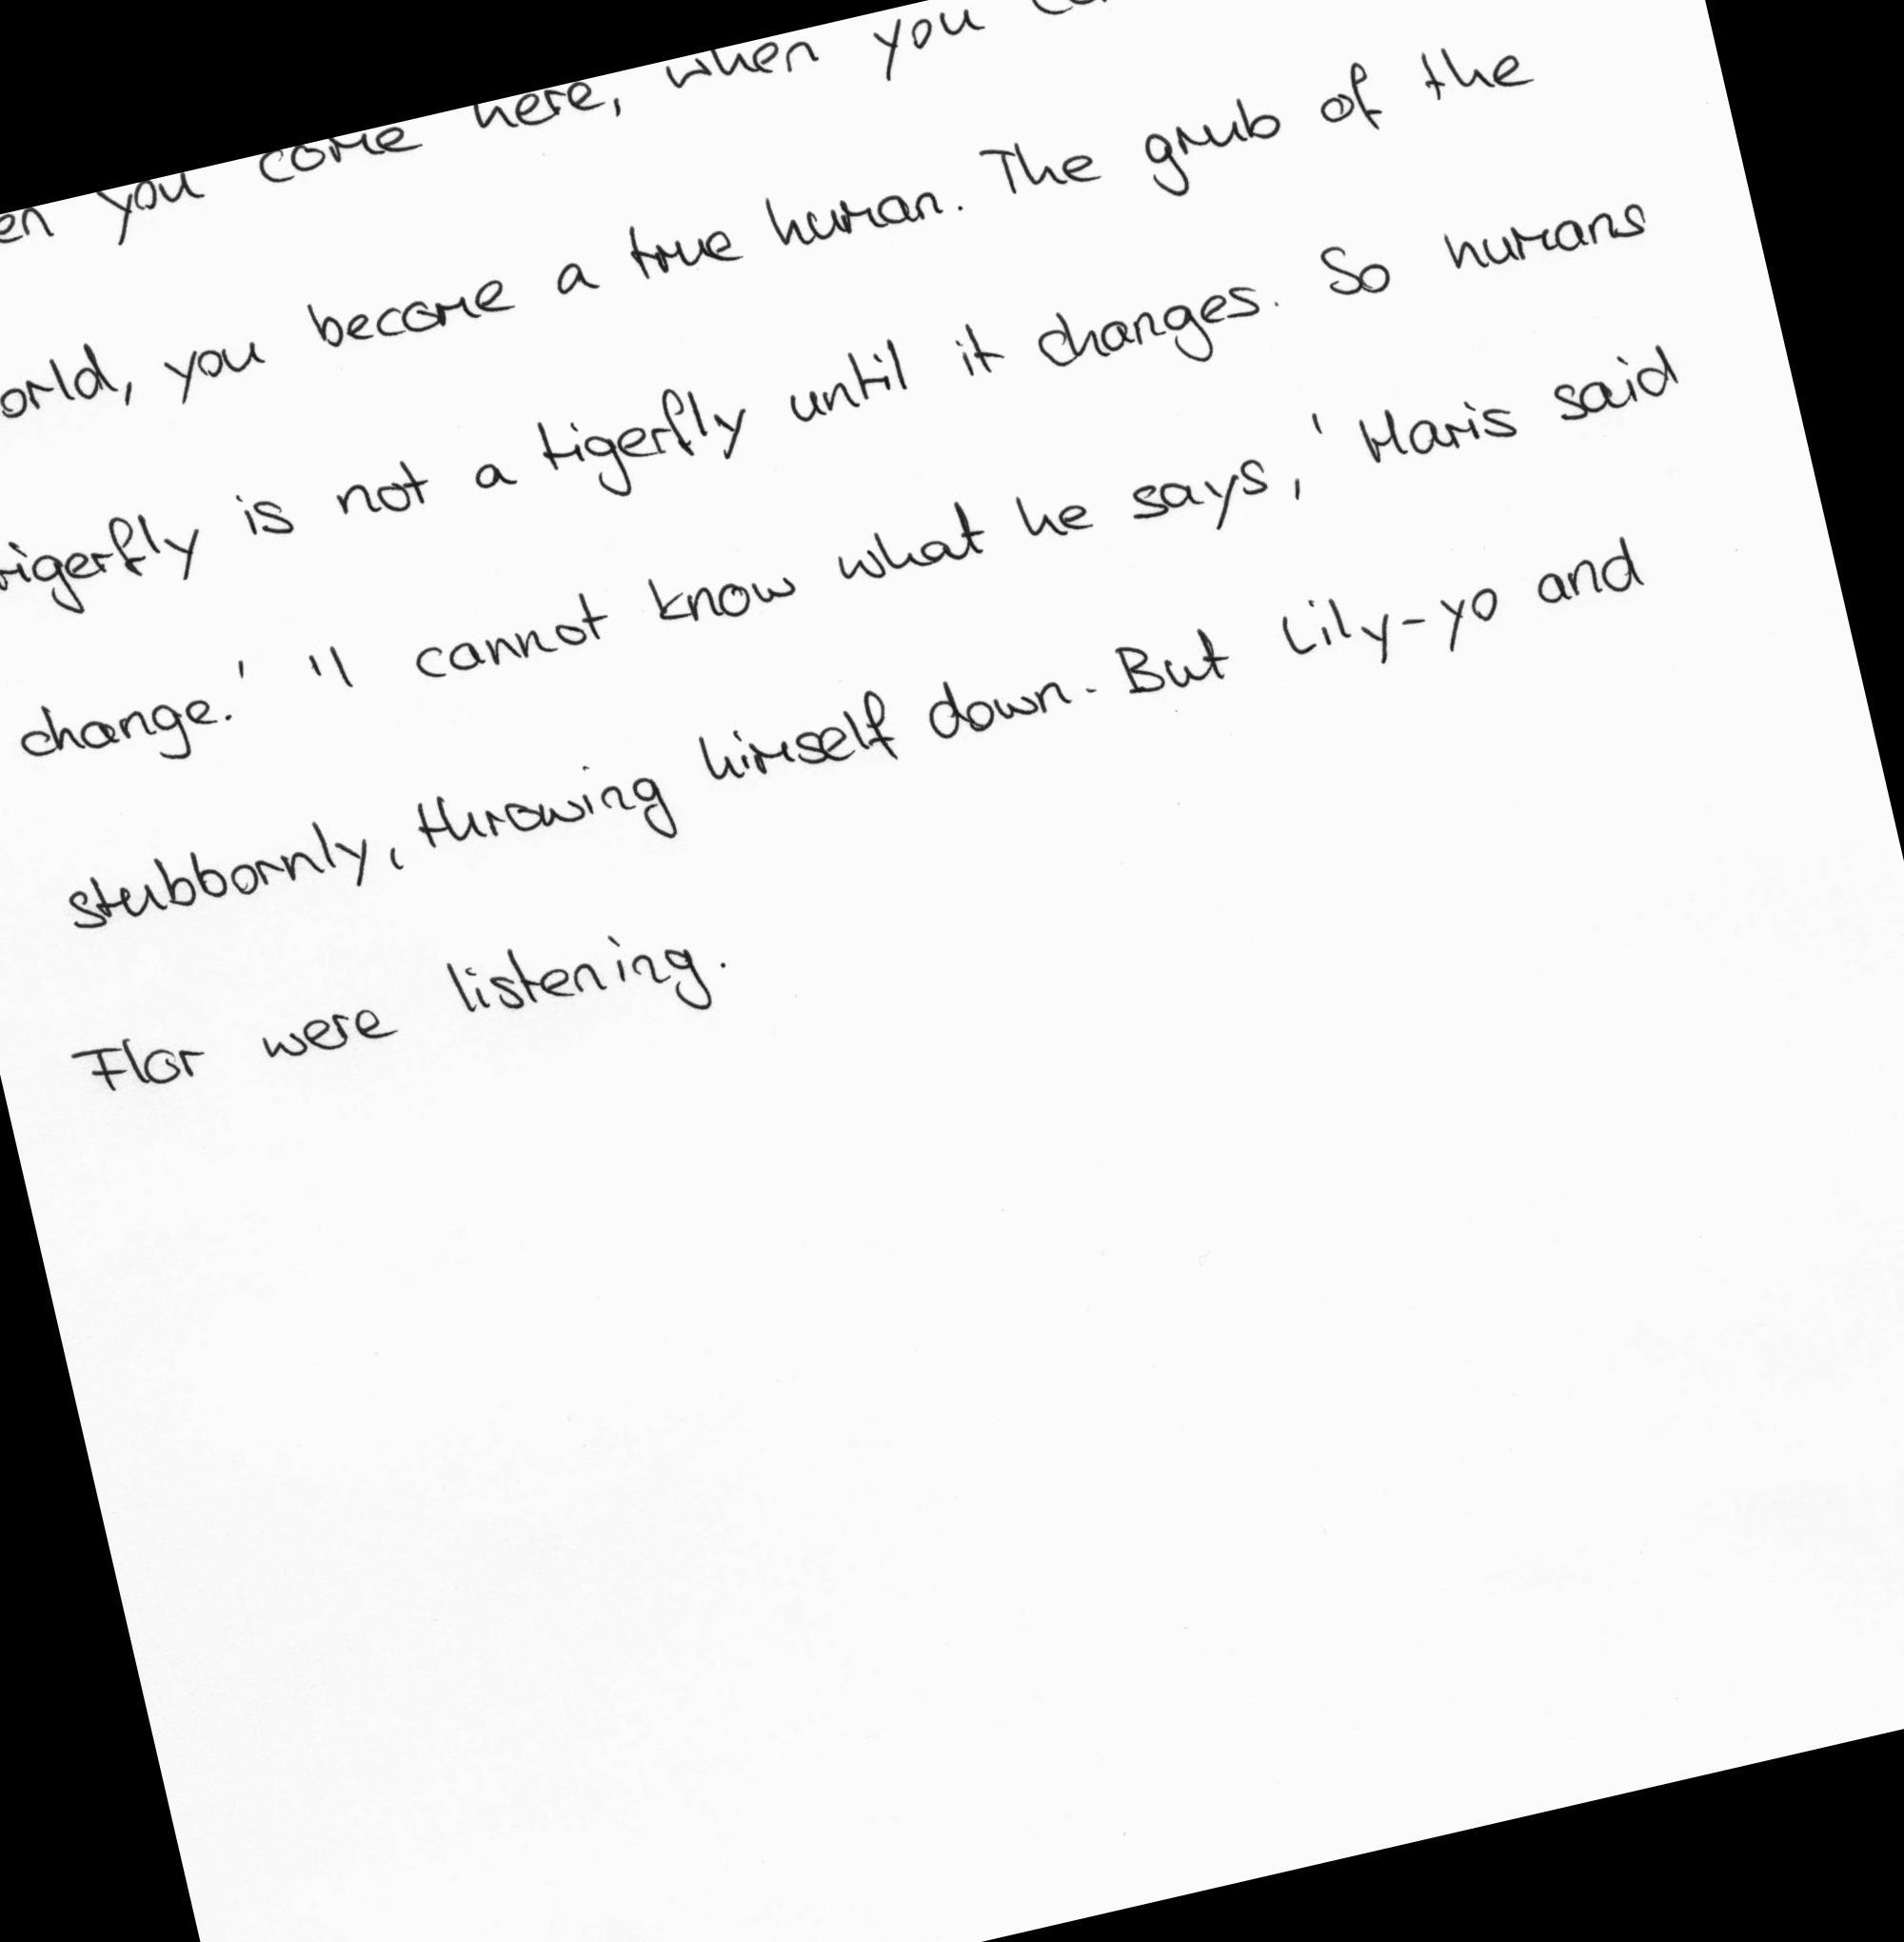 you come here, when you
you become a true human. The grub of the
is not a tigerfly until it changes. So humans
change.' 'I cannot know what he says,' Haris said
stubbornly, throwing himself down. But Lily-yo and
Flor were listening.